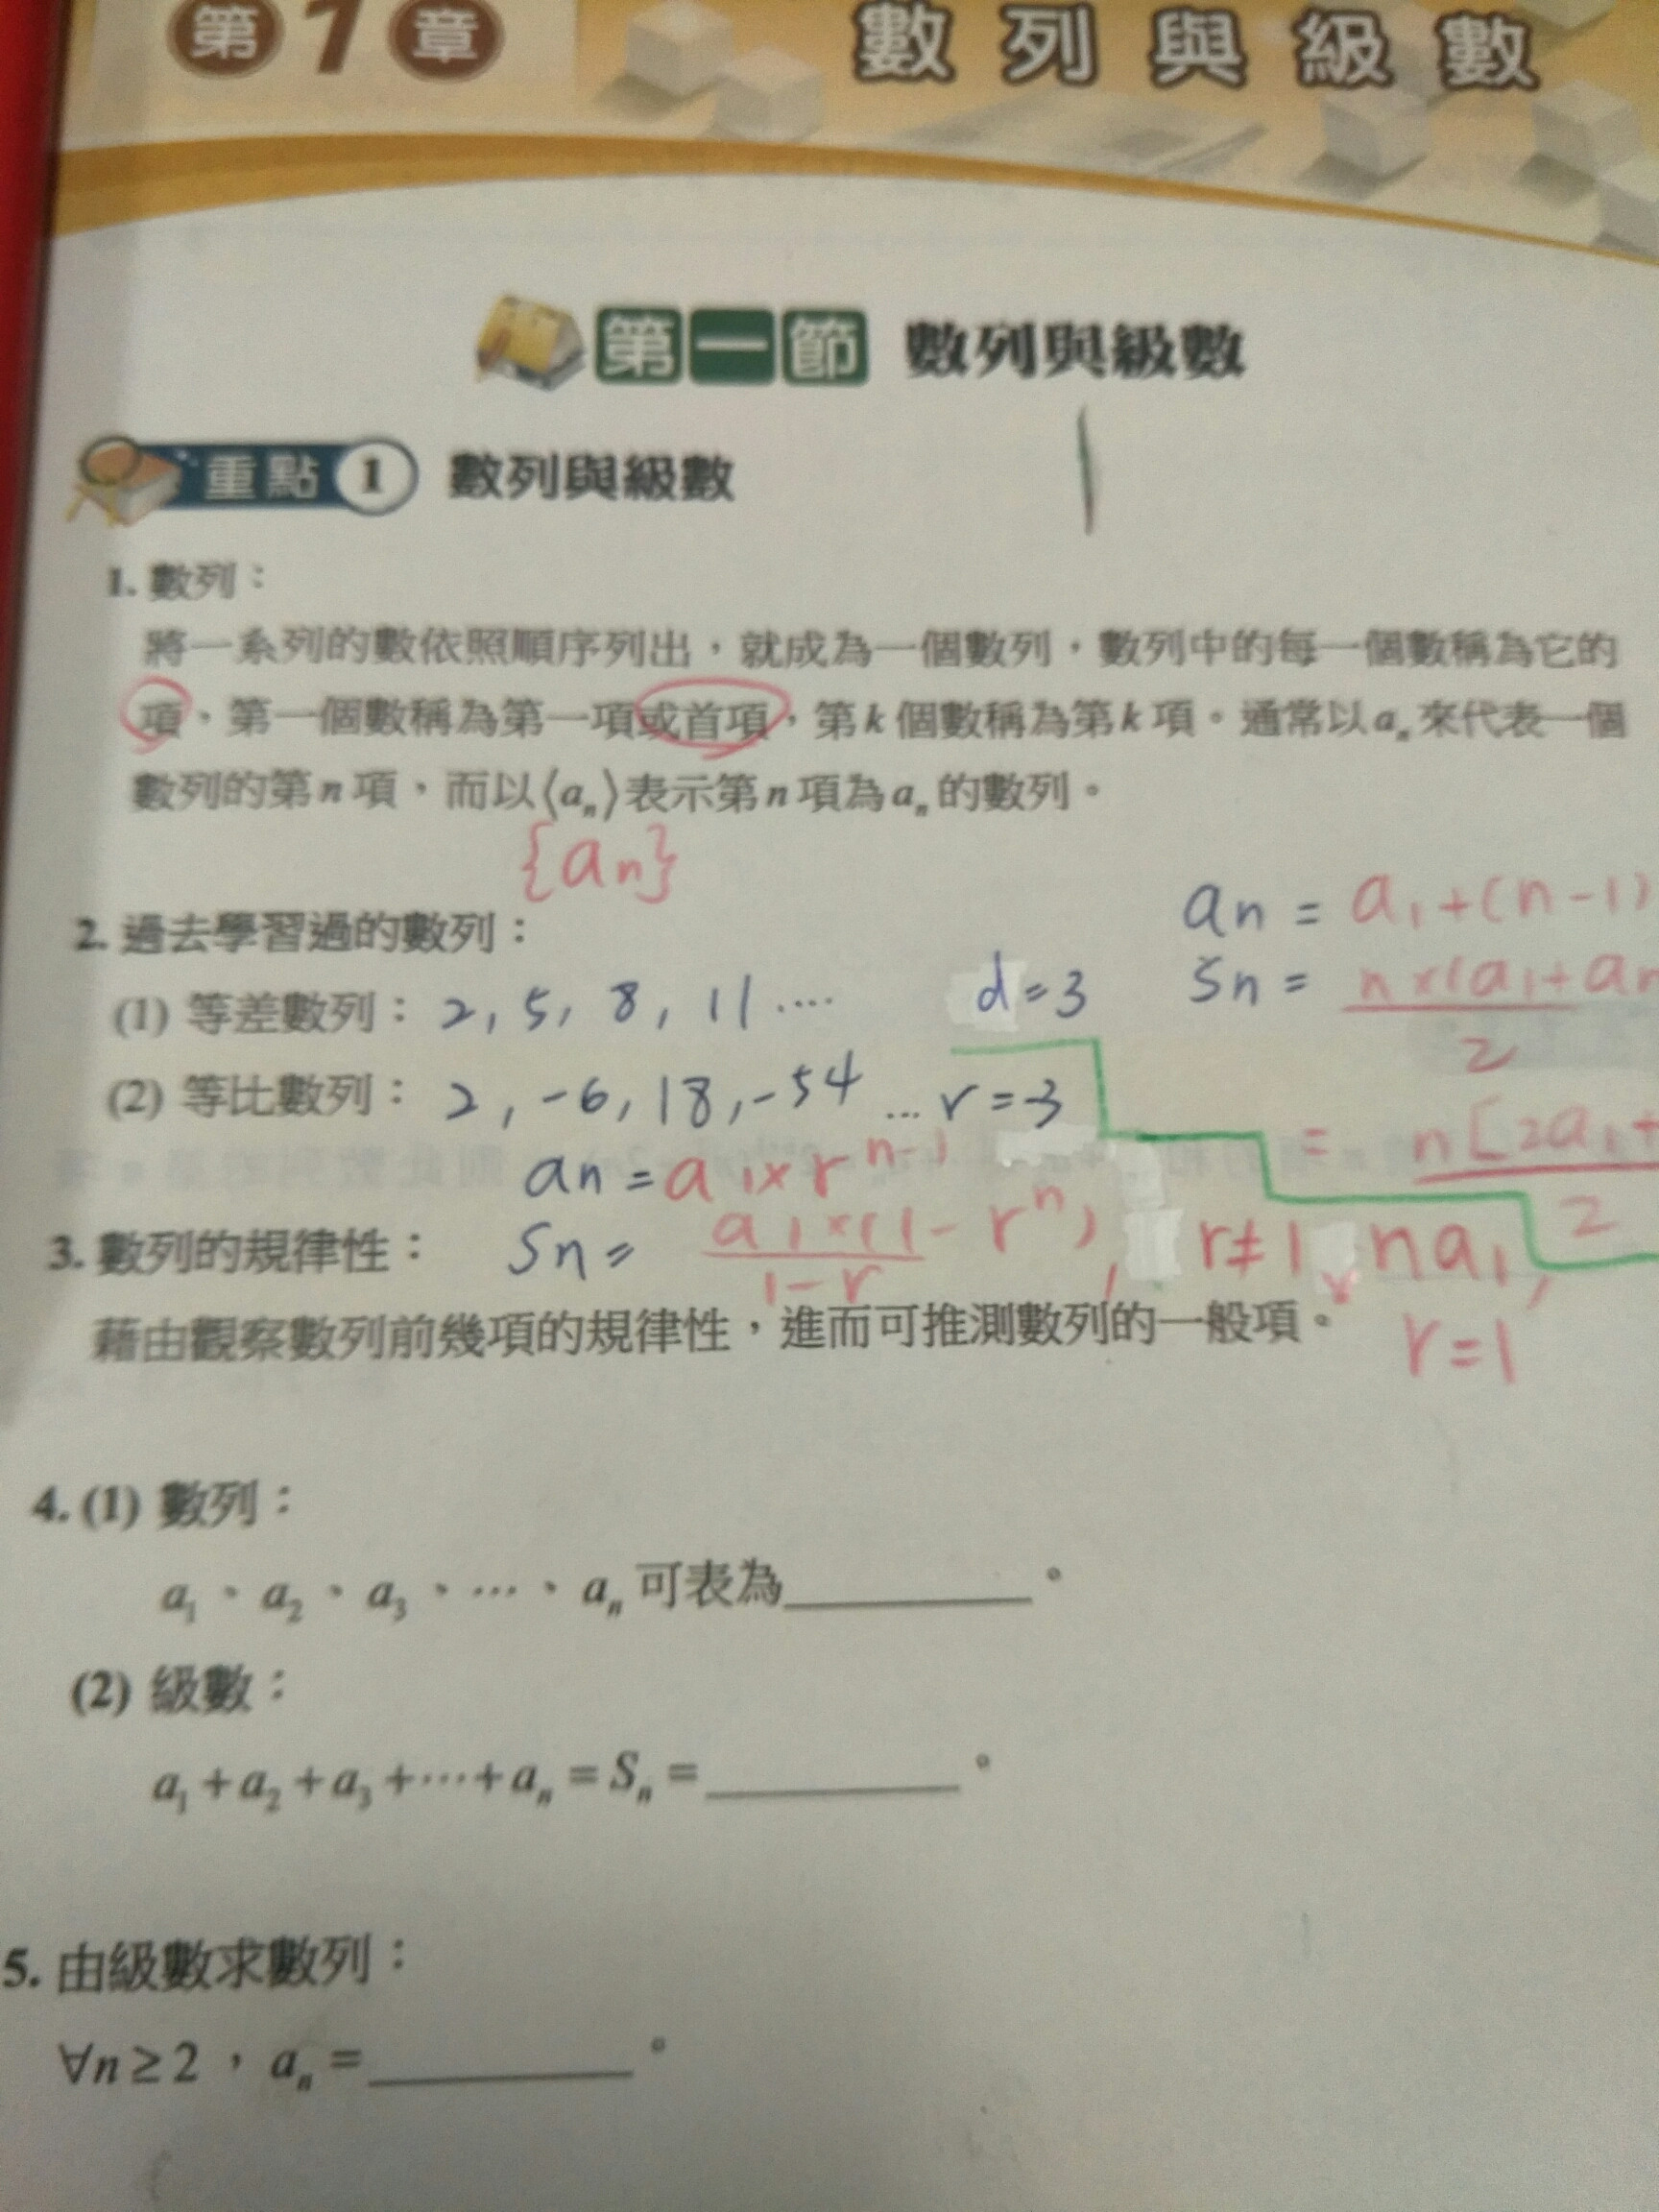 第1章 數列與級數
第一節 數列與級數
重點 1 數列與級數
1. 數列：
將一系列的數依照順序列出，就成為一個數列，數列中的每一個數稱為它的
項，第一個數稱為第一項或首項，第k個數稱為第k項。通常以aₙ來代表一個
數列的第n項，而以⟨aₙ⟩表示第n項為aₙ的數列。
{an}
2. 過去學習過的數列：
an = a₁+(n-1)
(1) 等差數列：2, 5, 8, 11 .... d=3
Sn = n×(a₁+an / 2
(2) 等比數列：2, -6, 18, -54 ... r=-3
= n[2a₁+ / 2
an = a₁×rⁿ⁻¹
3. 數列的規律性：
Sn = a₁×(1-rⁿ) / 1-r , r≠1、na₁,
r=1
藉由觀察數列前幾項的規律性，進而可推測數列的一般項。
4. (1) 數列：
a₁、a₂、a₃、…、aₙ可表為________。
(2) 級數：
a₁+a₂+a₃+…+aₙ=Sₙ=________。
5. 由級數求數列：
∀n≥2，aₙ=________。